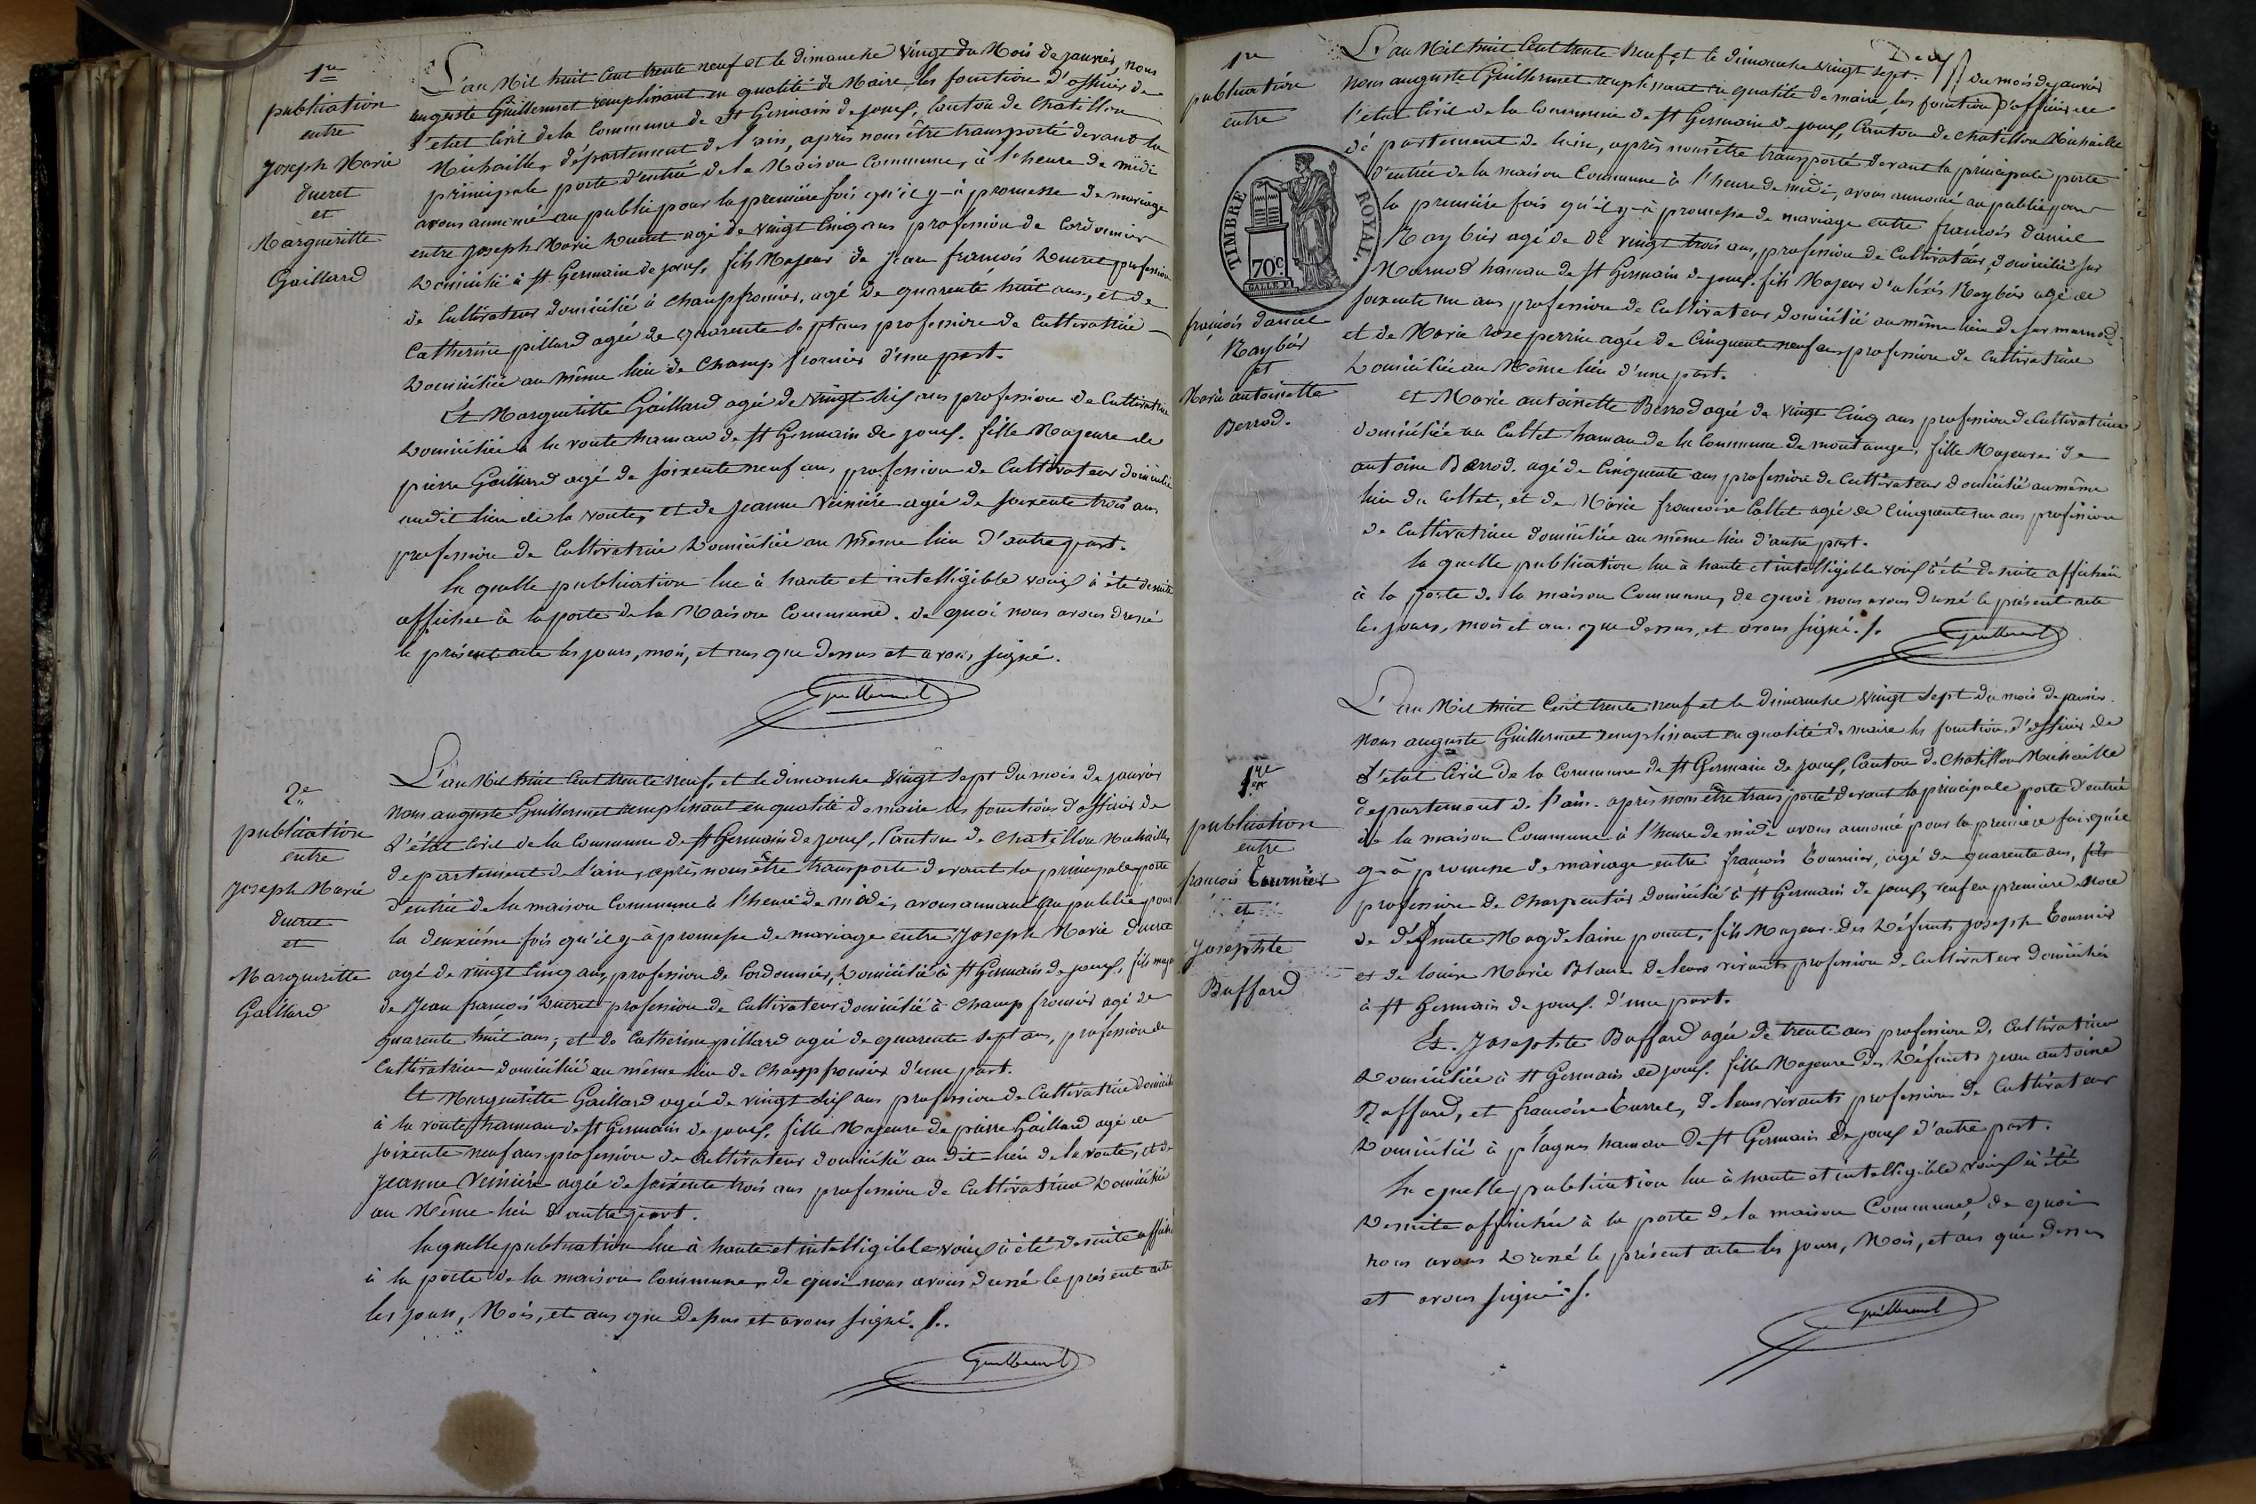 1re
publication
entre
Joseph Marie
ducret
et
Margueritte
Gaillard
L'an Mil huit Cent trente neuf et le dimanche vingt du Mois de janvier, nous
auguste Guillermet remplissant en qualité de Maire, les fonctions d'officier de
l'etat Civil de la Commune de St Germain de joux, Canton de Chatillon
Michaille, département de l'ain, après nous être transporté devant la
principale porte d'entrée de la Maison Commune, à l'heure de midi
avons annoncé au public pour la première fois qu'il y-à promesse de mariage
entre Joseph Marie Ducret agé de vingt Cinq ans profession de Cordonnier
Domicilié à St Germain de joux, fils Majeur de Jean françois Ducret profession
de Cultivateur domicilié à Champfromier, agé de quarente huit ans, et de
Catherine pillard agée de quarente sept ans profession de Cultivatrice
Domiciliée au même lieu de Champ fromier d'une part.
Et Margueritte Gaillard agée de vingt six ans profession de Cultivatrice
Domiciliée à la voute hamau de St Germain de joux. fille Majeure de
pierre Gaillard agé de soixente neuf ans, profession de Cultivateur domicilié
audit lieu de la voute, et de Jeanne agée de soixente trois ans
profession de Cultivatrice Domiciliée au Même lieu d'autre part.
la quelle publication lue à haute et intelligible voix à été de suite
affichée à la porte de la Maison Commune. de quoi nous avons dressé
le présent acte les jours, mois, et ans que dessus et avons signé.
Guillermet
2e
publication
entre
Joseph Marie
ducret
et
Margueritte
Gaillard
L'an Mil huit Cent trente neuf, et le dimanche vingt sept du mois de janvier
nous auguste Guillermet remplissant en qualité de maire les fonctions d'officier de
l'état Civil de la Commune de St Germain de joux, Canton de Chatillon Michaille,
departement de l'ain, après nous être transporté devant la principale porte
d'entrée de la maison Commune à l'heure de midi, avons annoncé au public pour
la deuxiéme fois qu'il y-à promesse de mariage entre Joseph Marie ducret
agé de vingt Cinq ans, profession de Cordonnier, Domicilié à St Germain de joux, fils majeur
de Jean françois Ducret profession de Cultivateur domicilié à Champ fromier agé de
quarente huit ans, et de Catherine pillard agée de quarente sept ans, profession de
Cultivatrice domiciliée au même lieu de Champfromier d'une part.
Et Margueritte Gaillard agée de vingt six ans profession de Cultivatrice domiciliée
à la voute hamau de St Germain de joux, fille Majeure de pierre Gaillard agé de
soixente neuf ans profession de Cultivateur domicilié au dit lieu de la voute, et de
Jeanne agée de soixente trois ans profession de Cultivatrice Domiciliée
au Même lieu d'autre part.
la quelle publication lue à haute et intelligible voix à été de suite affichée
à la porte de la maison Commune, de quoi nous avons dressé le présent acte
les jours, Mois, et ans que dessus et avons signé.
Guillermet
1re
publication
entre
TIMBRE ROYAL.
70c
françois daniel
Raybier
et
Marie antoinette
Berrod.
L'an Mil huit Cent trente Neuf, et le dimanche vingt sept du mois de janvier
Nous auguste Guillermet remplissant en qualité de maire, les fonctions d'officier de
l'etat Civil de la Commune de St Germain de joux, Canton de Chatillon Michaille
département de l'ain, après nous être transporté devant la principale porte
d'entrée de la maison Commune à l'heure de midi, avons annoncé au public pour
la première fois qu'il y-à promesse de mariage entre françois daniel
Raybier agé de de vingt trois ans, profession de Cultivateur, domicilié sur
Marnod hamau de St Germain de joux, fils Majeur d'alexis Raybier agé de
soixente un ans profession de Cultivateur domicilié au même lieu de sur marnod,
et de Marie rose perrin agée de Cinquente neuf ans profession de Cultivatrice
Domiciliée au Même lieu d'une part.
et Marie antoinette Berrod agée de vingt Cinq ans profession de Cultivatrice
domiciliée au Cultet hamau de la Commune de montange, fille Majeure de
antoine Berrod. agé de Cinquente ans profession de Cultivateur domicilié au même
lieu du Cultet, et de Marie francoise Callet agée de Cinquente un ans profession
de Cultivatrice domiciliée au même lieu d'autre part.
la quelle publication lue à haute et intelligible voix à été de suite affichée
à la porte de la maison Commune, de quoi nous avons dressé le présent acte
les jours, mois et an. que dessus, et avons signé.
Guillermet
1re
publication
entre
françois Tournier
et
Josephte
Buffard
L'an Mil huit Cent trente neuf et le dimanche vingt sept du mois de janvier.
Nous auguste Guillermet remplissant en qualité de maire les fonctions d'officier de
l'etat Civil de la Commune de St Germain de joux, Canton de Chatillon Michaille
departement de l'ain. après nous être transporté devant la principale porte d'entrée
de la maison Commune à l'heure de midi avons annoncé pour la première fois qu'il
y-à promesse de mariage entre françois Tournier, agé de quarente ans, fils
profession de Charpentier domicilié à St Germain de joux, veuf en première Noce
de défunte Magdelaine poncet, fils Majeur des Défunts Joseph Tournier
et de louise Marie Blanc de leurs vivants profession de Cultivateur domiciliés
à St Germain de joux. d'une part.
Et. Josephte Buffard agée de trente ans profession de Cultivatrice
Domiciliée à St Germain de joux. fille Majeure des Défunts jean antoine
Baffard, et francoise Turrel, de leurs vivants profession de Cultivateur
Domicilié à plagnes hamau de St Germain de joux d'autre part.
la quelle publication lue à haute et intelligible voix à été
De suite affichée à la porte de la maison Commune, de quoi
nous avons Dressé le présent acte les jours, Mois, et ans que dessus
et avons signé.
Guillermet